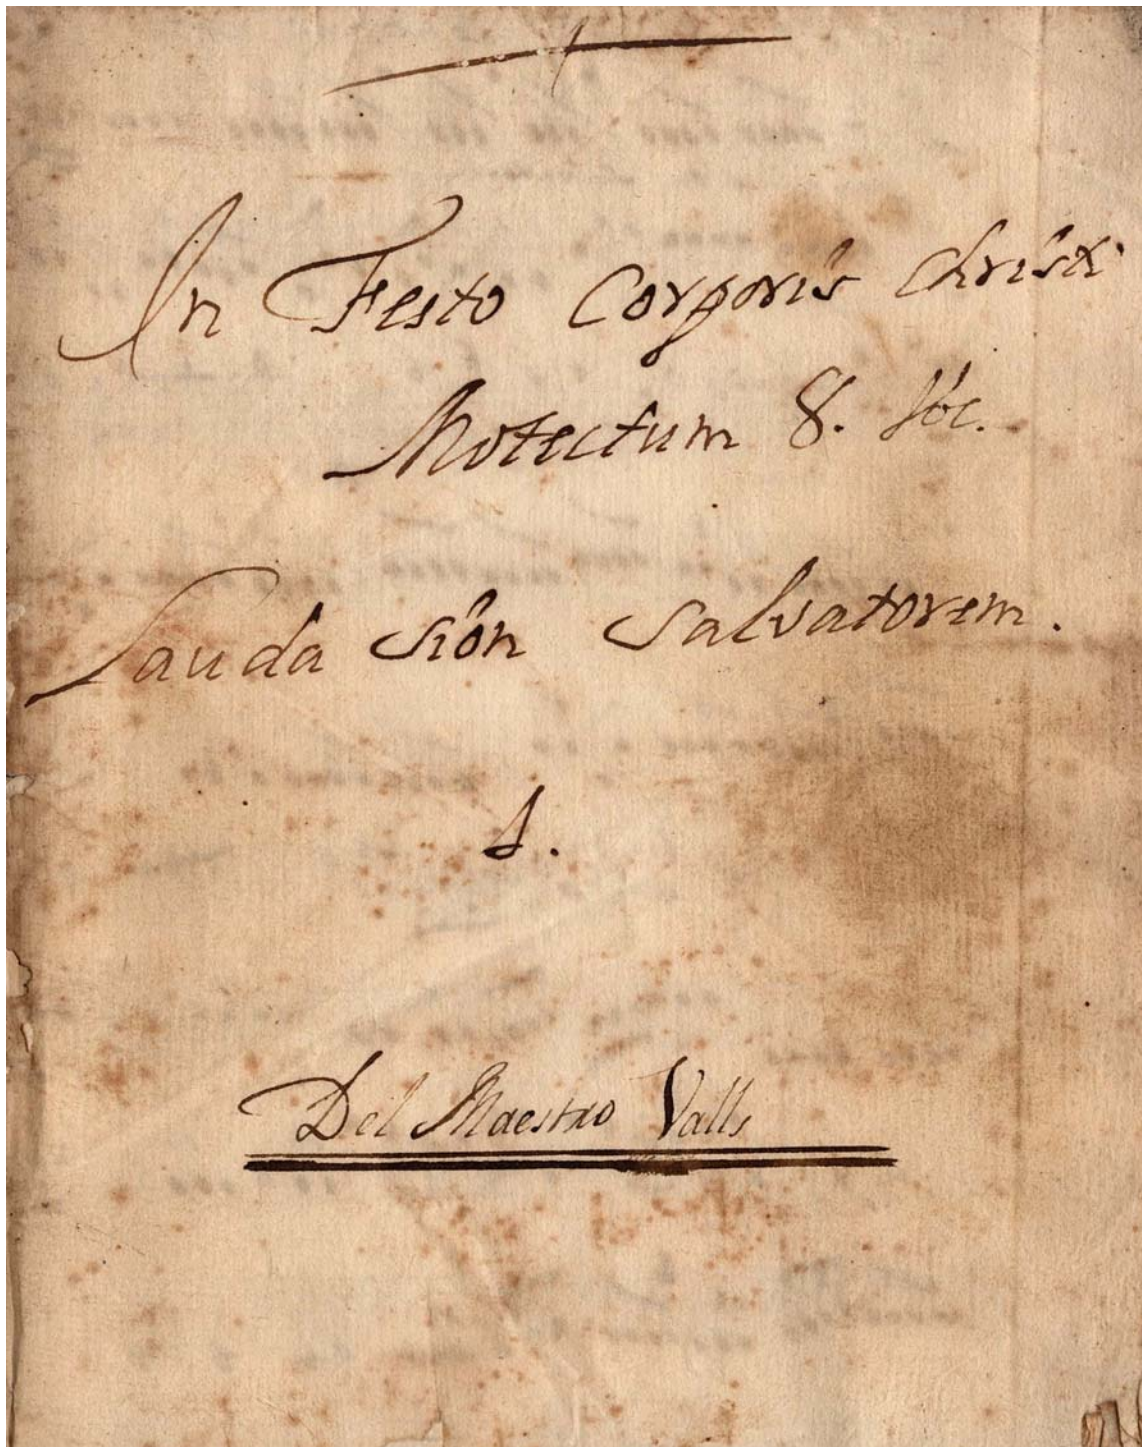 In Festo Corporis Christi
Motectum 8. Voc.
Lauda sion salvatorem.
Del Maestro Valls